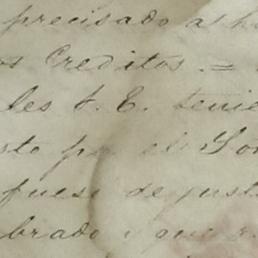 precisado al h
os Creditos. =
les S. E. tenie
sto por el Son
fuese de justa
brado y que